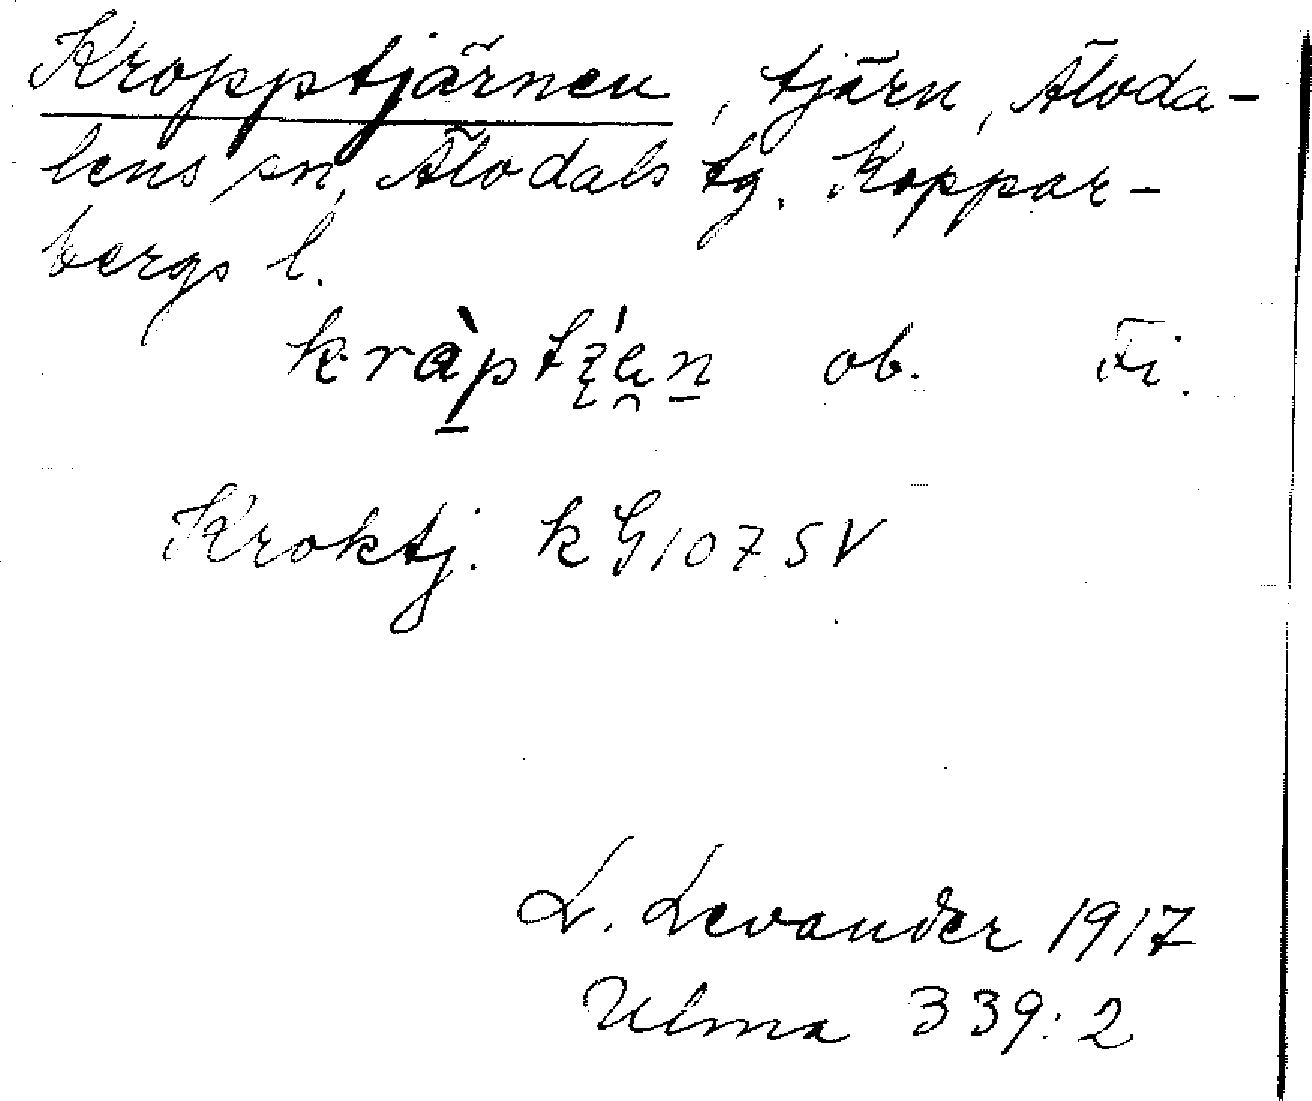 Kropptjärnen, tjärn, Älvda-
lens sn, Älvdals tg. Koppar-
bergs l.
ob. Fi.
Kroktj. k G 107 SV
L. Levander 1917
Ulma 339:2